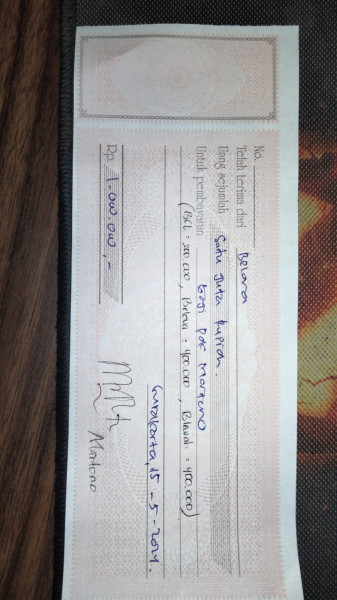 No.
Telah terima dari Belara
Uang sejumlah Satu juta rupiah.
Untuk pembayaran bagi pak Margono
= 200.000, = 400.000, = 400.000)
Surakarta, 15 - 5 - 2024.
Rp. 1.000.000,-
Martono